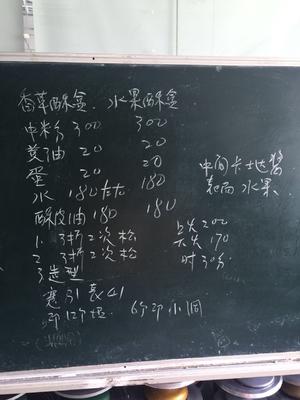 香草酥盒. 水果酥盒
中粉 300 300
黄油 20 20
蛋 20 20
水 180左右 180
酥皮油 180 180
中间卡士达酱
表面 水果.
1. 3折2次 松
2. 3折2次 松
3 造型
上火 200
下火 170
时 30分
6个 小圆